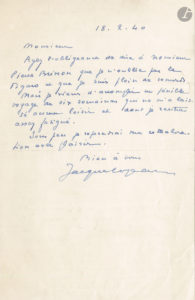 18. 2. 40
Monsieur
Ayez l'obligeance de dire à Monsieur
Pierre Brisson que je n'oublie pas le
Figaro et que je suis plein de remords
Mais je viens d'accomplir un pénible
voyage de six semaines qui ne m'a laissé
aucun loisir et dont je
assez fatigué.
peu je reprendrai ma collabora-
tion avec plaisir.
Bien à vous
Jacques Copeau